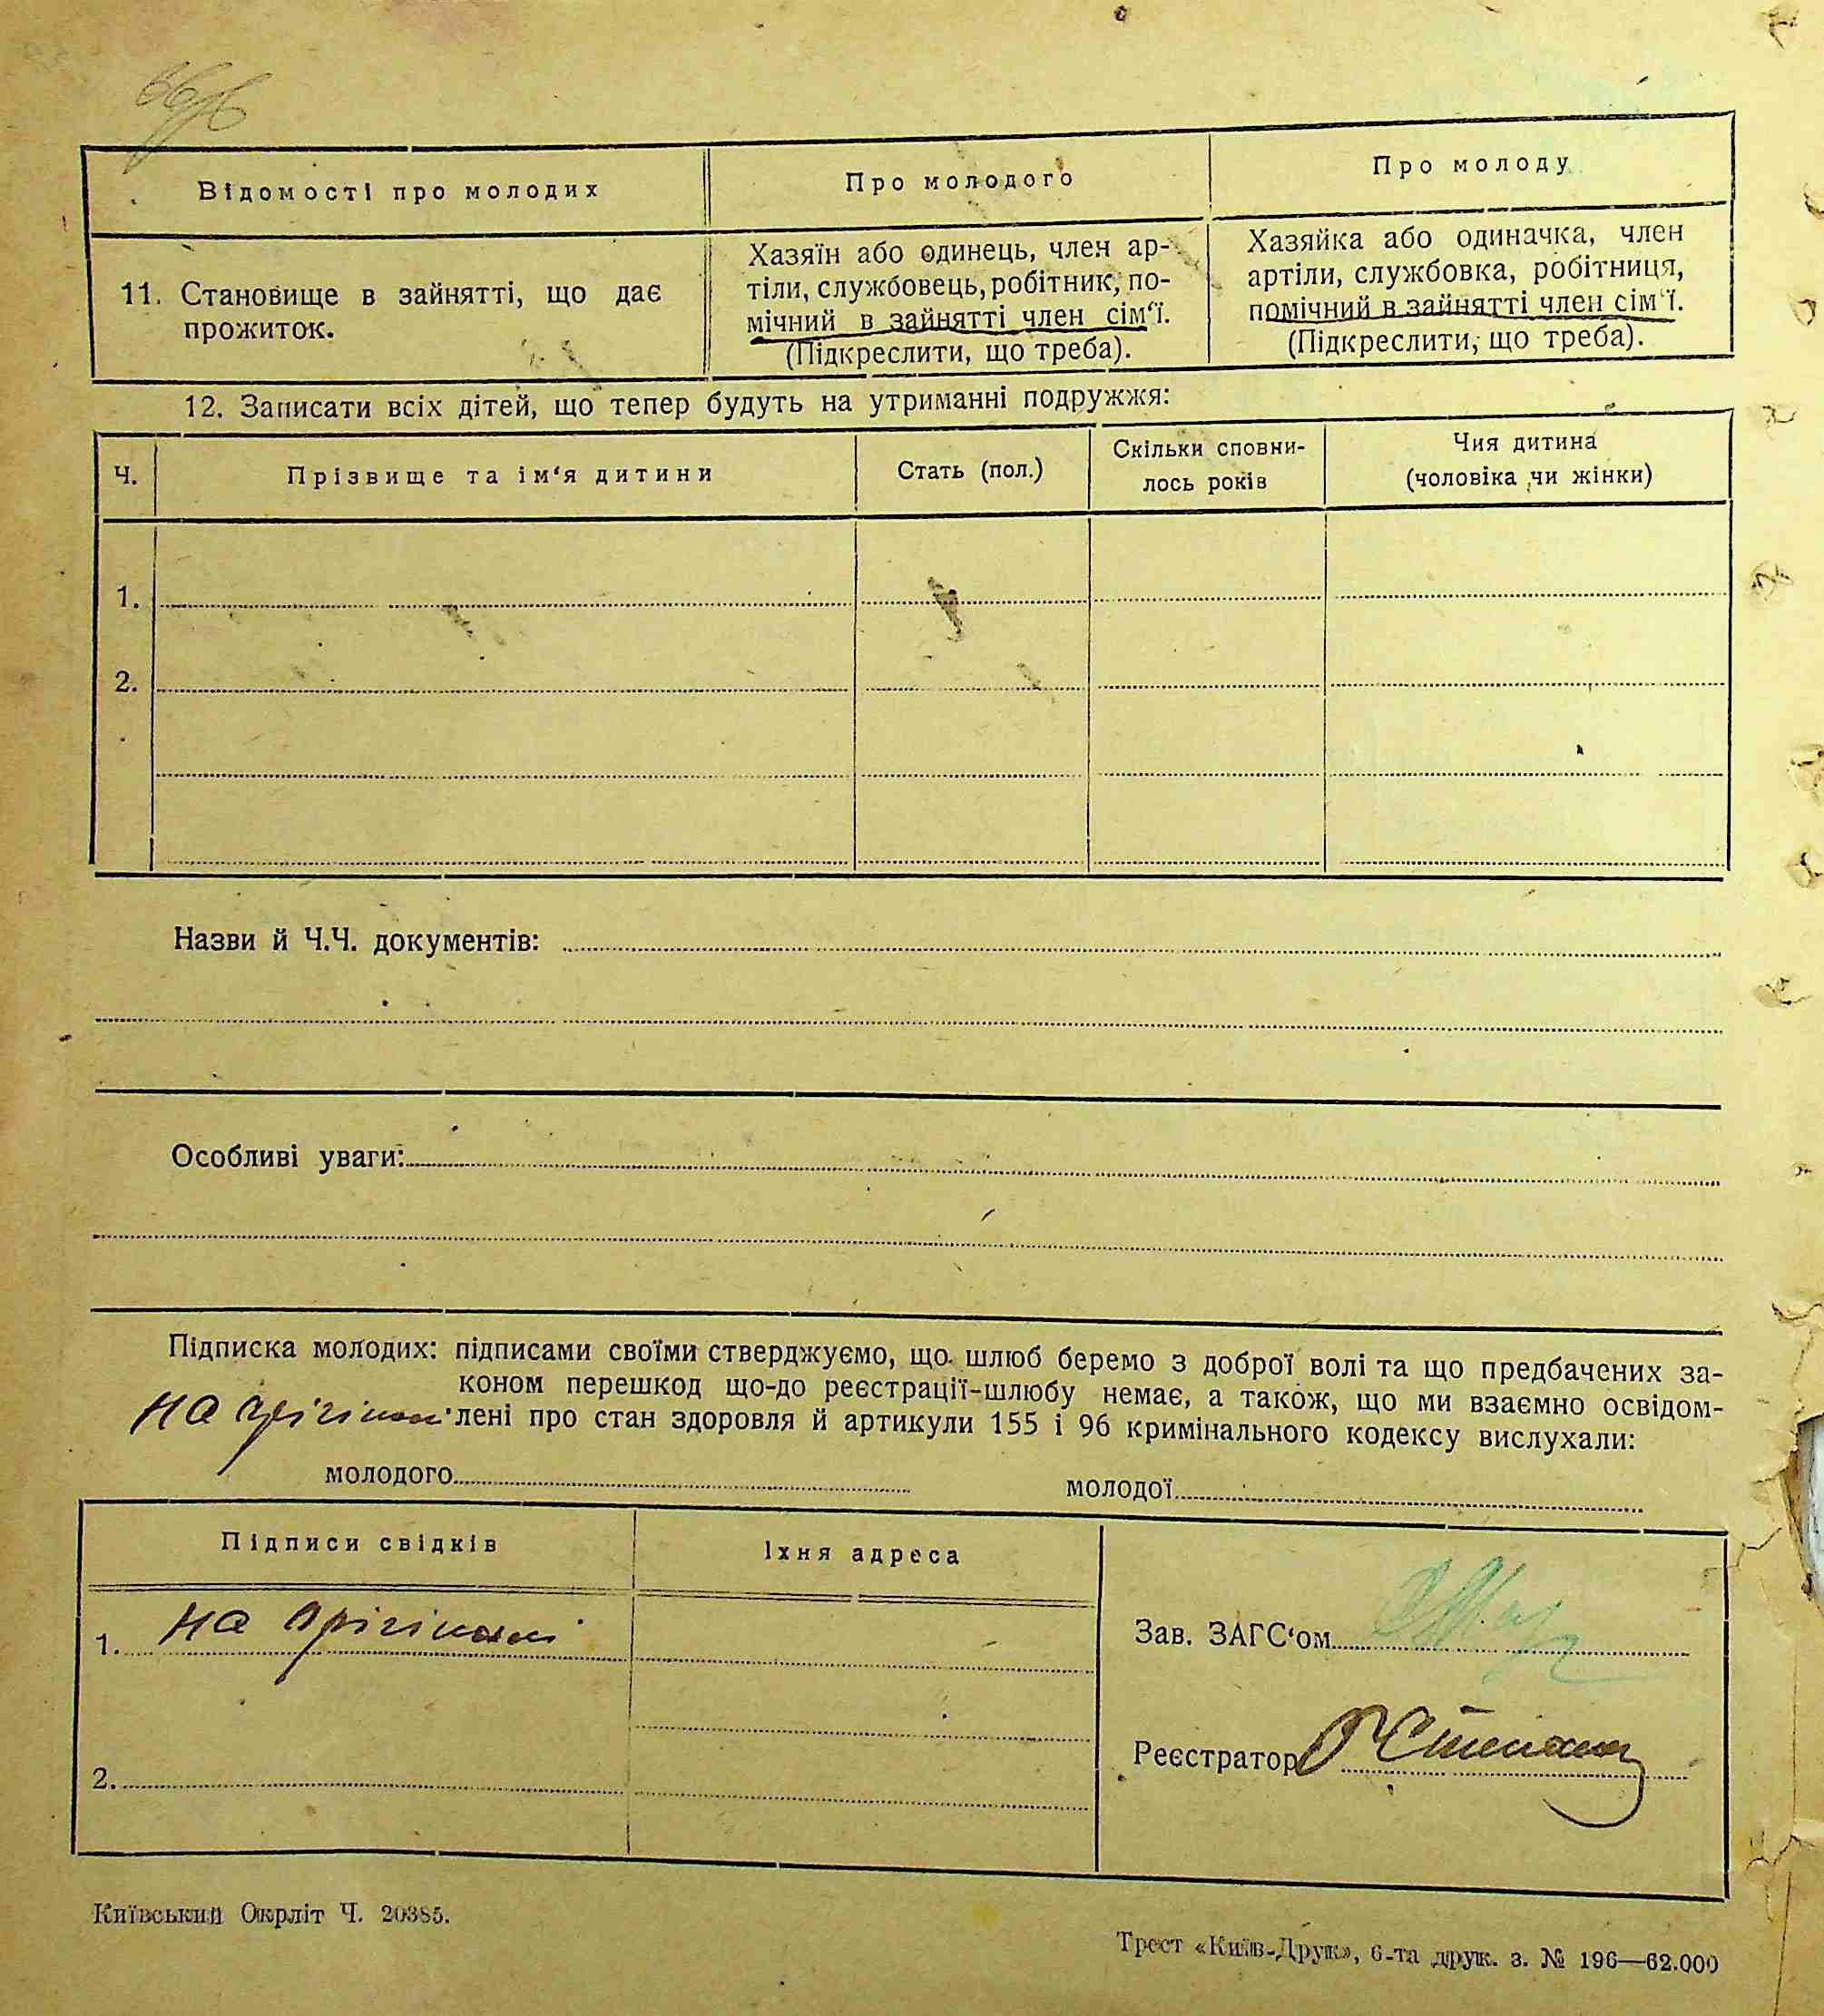 Відомості про молодих
Про молодого
Про молоду
11. Становище в зайнятті, що дає
прожиток.
Хазяїн або одинець, член ар-
тіли, службовець, робітник, по-
мічний в зайнятті член сім‘ї.
(Підкреслити, що треба).
Хазяйка або одиначка, член
артіли, службовка, робітниця,
помічний в зайнятті член сім‘ї.
(Підкреслити, що треба).
12. Записати всіх дітей, що тепер будуть на утриманні подружжя:
Ч.
Прізвище та ім‘я дитини
Стать (пол.)
Скільки сповни-
лось років
Чия дитина
(чоловіка чи жінки)
1.
2.
Назви й Ч.Ч. документів:
Особливі уваги:
Підписка молодих: підписами своїми стверджуємо, що шлюб беремо з доброї волі та що предбачених за-
коном перешкод що-до реєстрації-шлюбу немає, а також, що ми взаємно освідом-
на орігіналі
лені про стан здоровля й артикули 155 і 96 кримінального кодексу вислухали:
молодого
молодої
Підписи свідків
Їхня адреса
1. на орігіналі
2.
Зав. ЗАГС‘ом
Реєстратор
Київський Окрліт Ч. 20385.
Трест «Київ-Друк», 6-та друк. з. № 196—62.000